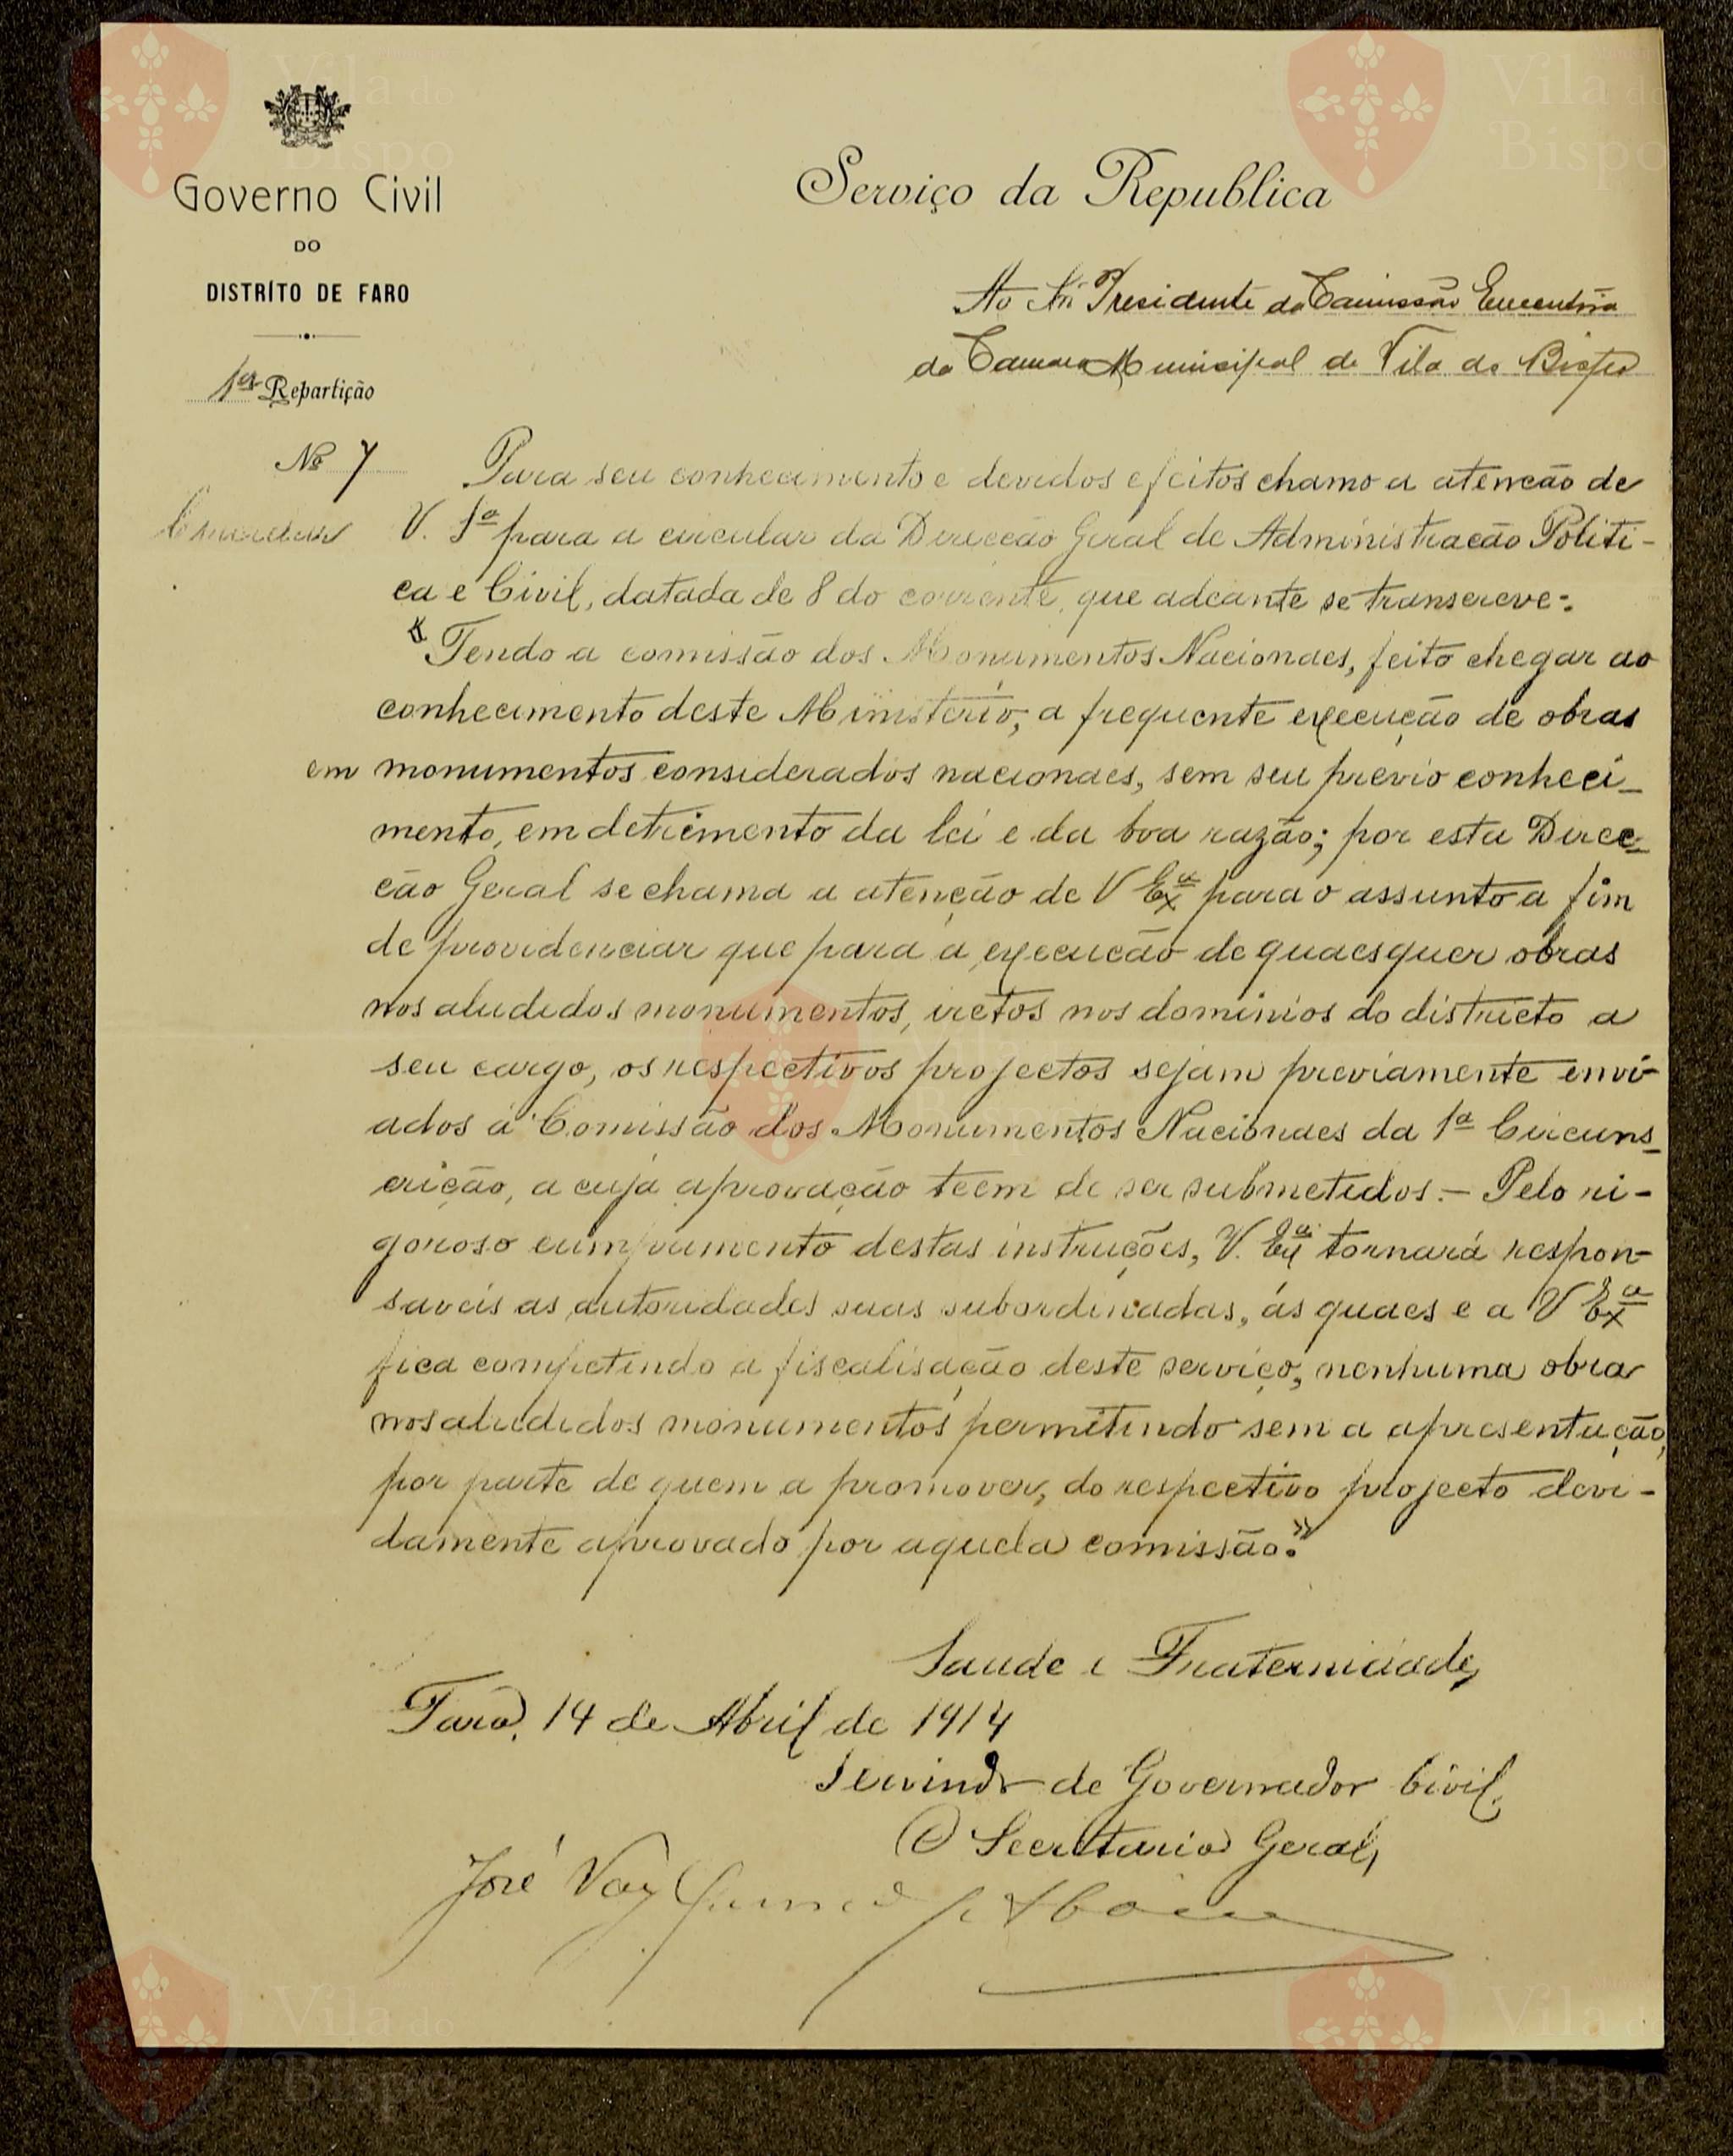 Governo Civil
DO
DISTRÍTO DE FARO
1ª Repartição
Nº 7
Circular
Serviço da Republica
Ao Snr Presidente da Comissão Executiva
da Camara Municipal de Vila do Bispo
Para seu conhecimento e devidos efeitos chamo a atenção de
V. Sª para a circular da Direcção Geral de Administração Politi-
ca e Civil, datada de 8 do corrente, que adeante se transcreve:
"Tendo a comissão dos Monumentos Nacionaes, feito chegar ao
conhecimento deste Ministerio, a frequente execução de obras
em monumentos considerados nacionaes, sem seu previo conheci-
mento, em detrimento da lei e da boa razão; por esta Direc-
ção Geral se chama a atenção de V Exª para o assunto a fim
de providenciar que para a execução de quaesquer obras
nos aludidos monumentos, iretos nos dominios do districto a
seu cargo, os respectivos projectos sejam previamente envi-
ados á Comissão dos Monumentos Nacionaes da 1ª Circuns-
crição, a cuja aprovação teem de ser submetidos. - Pelo ri-
goroso cumprimento destas instruções, V. Exª tornará respon-
saveis as autoridades suas subordinadas, ás quaes e a V Exª
fica competindo a fiscalisação deste serviço, nenhuma obra
nos aludidos monumentos permitindo sem a apresentação,
por parte de quem a promover, do respectivo projecto devi-
damente aprovado por aquela comissão."
Saude e Fraternidade,
Faro, 14 de Abril de 1914
Servindo de Governador Civil,
O Secretario Geral,
José Vaz
Vila do
Bispo
Vila do
Bispo
Vila do
Bispo
Vila do
Bispo
Vila do
Bispo